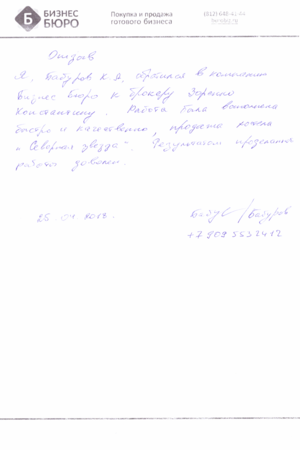 БИЗНЕС
БЮРО
Покупка и продажа
готового бизнеса
Отзыв
Я, Байдуров К.А, обратился в компанию
Бизнес Бюро к брокеру Зоренко
Константину. Работа была выполнена
быстро и качественно, продажа
"Северная звезда". Результатом проделанной
работы доволен.
25 01 2018.
Байдуров
+7 909 5532412